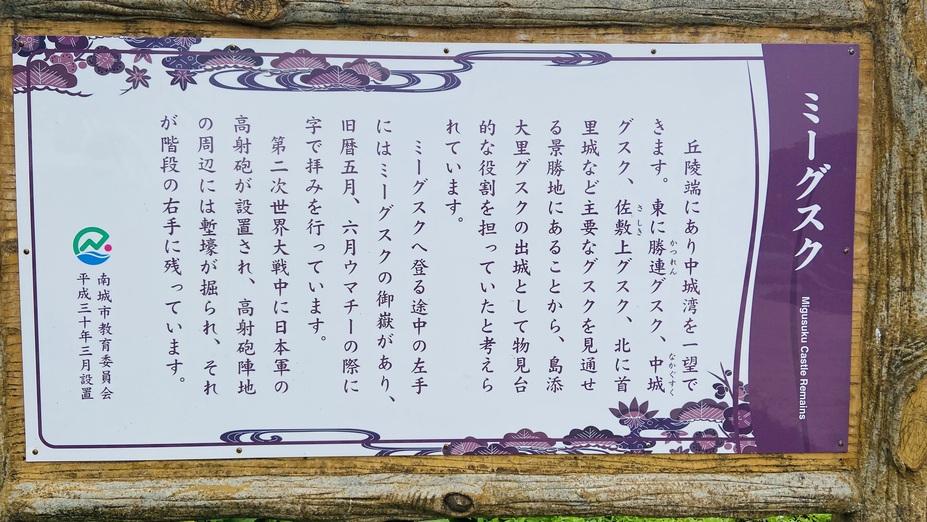 ミーグスク
Migusuku Castle Remains
丘陵端にあり中城湾を一望で
きます。東に勝連グスク、中城
グスク、佐敷上グスク、北に首
里城など主要なグスクを見通せ
る景勝地にあることから、島添
大里グスクの出城として物見台
的な役割を担っていたと考えら
れています。
ミーグスクへ登る途中の左手
にはミーグスクの御嶽があり、
旧暦五月、六月ウマチーの際に
字で拝みを行っています。
第二次世界大戦中に日本軍の
高射砲が設置され、高射砲陣地
の周辺には塹壕が掘られ、それ
が階段の右手に残っています。
南城市教育委員会
平成三十年三月設置